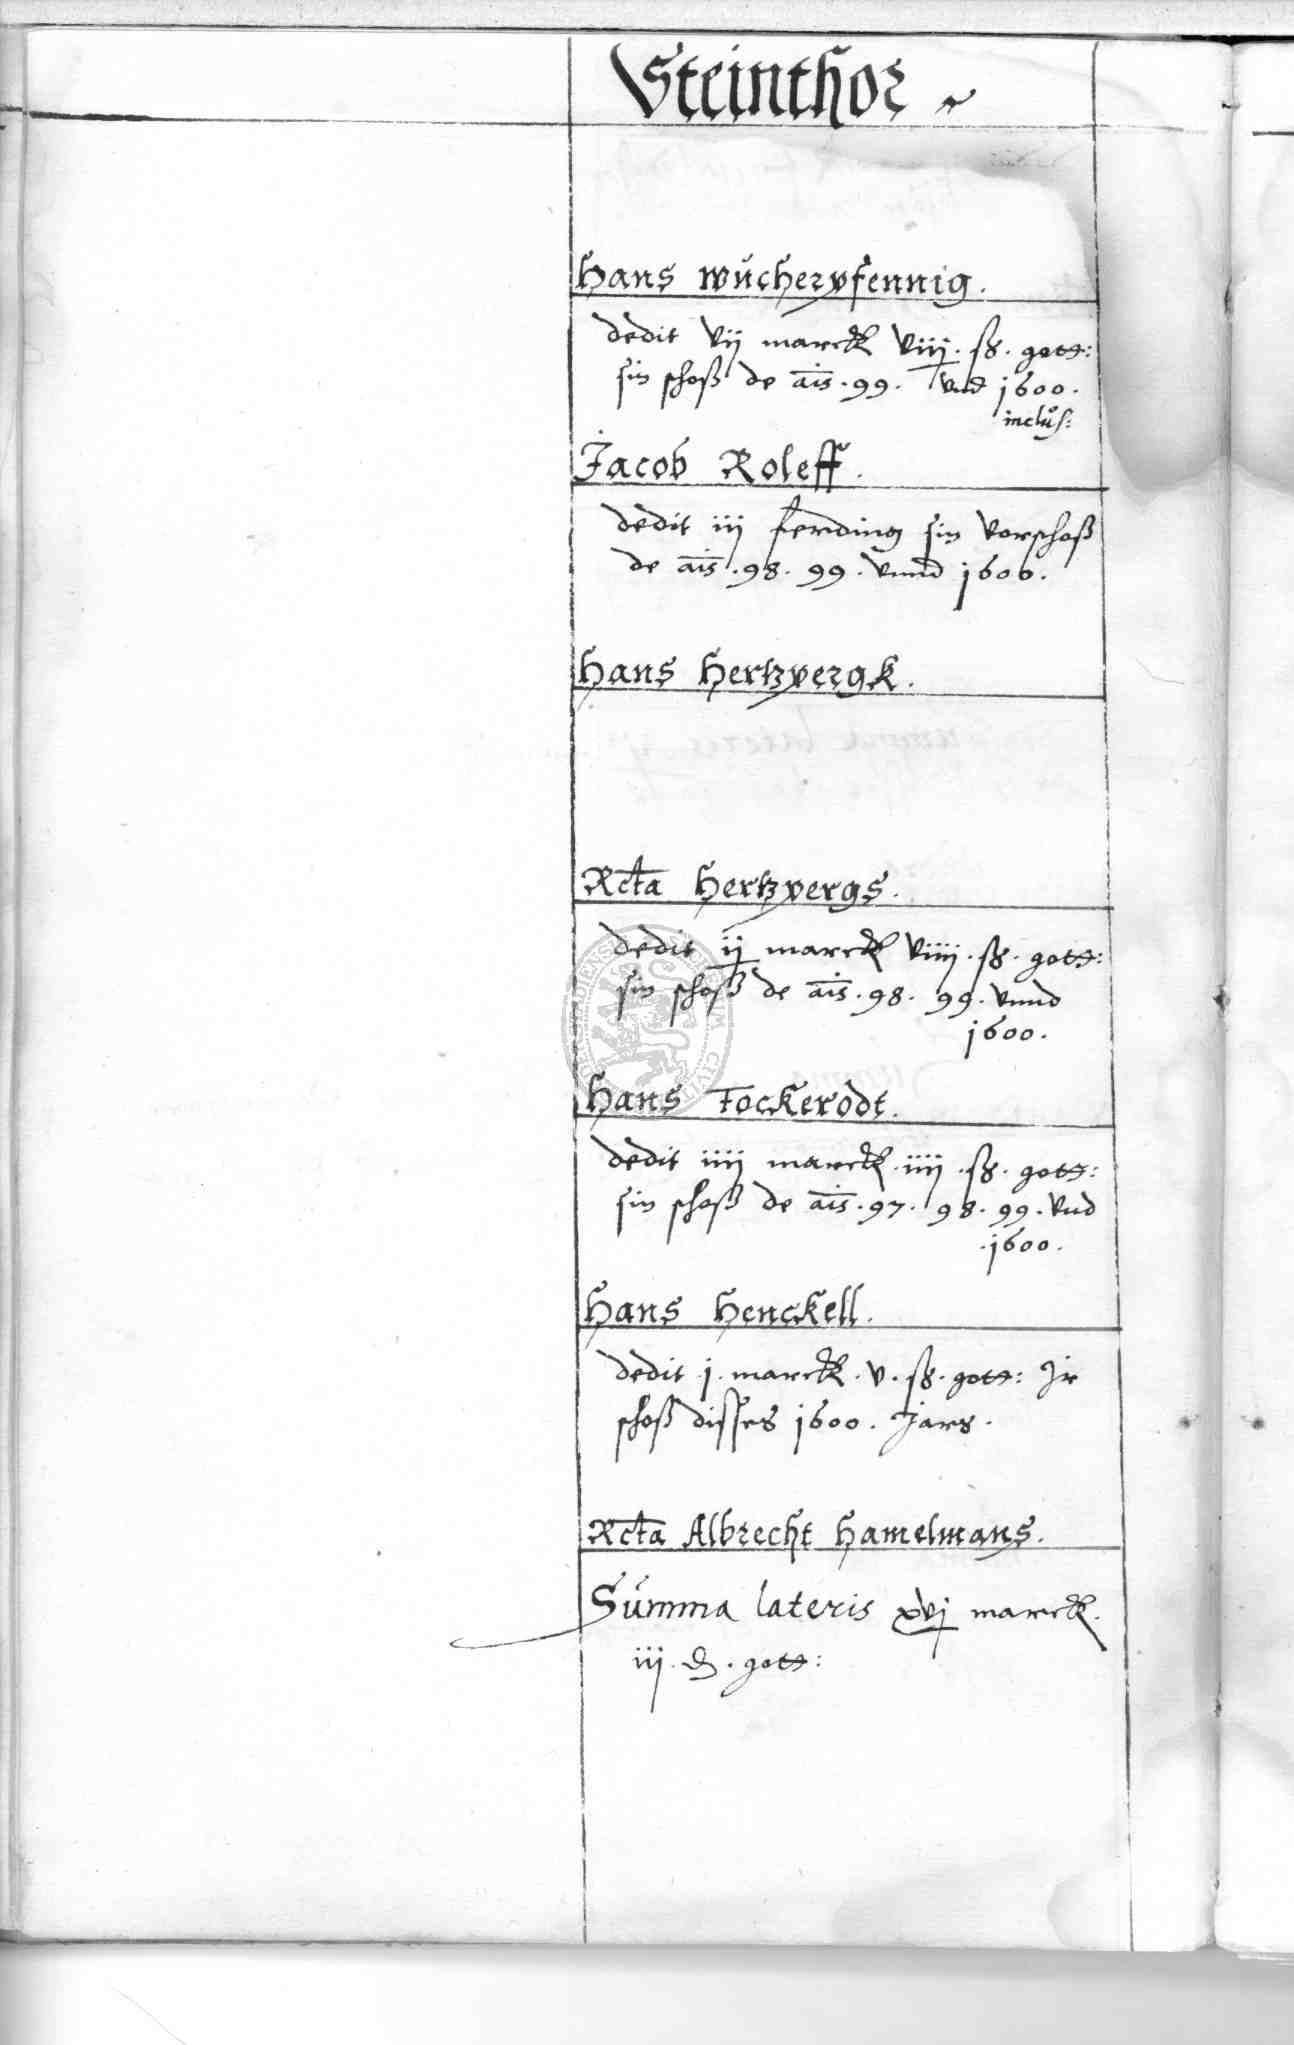 Steinthor
Hans Wůcherpfennig.
dedit vij marck viij. ß. gott:
sin schoß de ais. 99. vnd 1600.
inclůs:
Jacob Roleff.
dedit iij ferding sin vorschoß
de ais. 98. 99. vnnd 1600.
Hans Hertzbergk.
Rcta Hertzbergs.
dedit ij marck viiij. ß. gott:
sin schoß de ais. 98. 99. vnnd
1600.
Hans Fockerodt.
dedit iiij marck. iiij. ß. gott:
sin schoß de ais. 97. 98. 99. vnd
.1600.
Hans Henckell.
dedit .j. marck. v. ß. gott: Jr
schoß disses 1600. Jars.
Rcta Albrecht Hamelmans.
Sům̃a lateris xvj marck.
iij. d. gott: